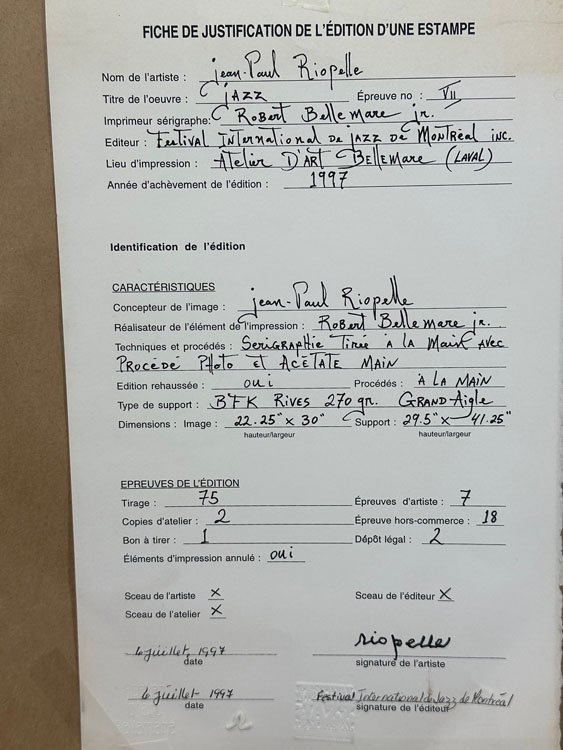 FICHE DE JUSTIFICATION DE L'ÉDITION D'UNE ESTAMPE
Nom de l'artiste : jean-Paul Riopelle
Titre de l'oeuvre : jAZZ Épreuve no : VII
Imprimeur sérigraphe: Robert Bellemare jr.
Editeur : Festival International de jazz de Montréal inc.
Lieu d'impression : Atelier D'Art Bellemare (LAVAL)
Année d'achèvement de l'édition : 1997
Identification de l'édition
CARACTÉRISTIQUES
Concepteur de l'image : jean-Paul Riopelle
Réalisateur de l'élément de l'impression : Robert Bellemare jr.
Techniques et procédés : Sérigraphie Tirée à la Main Avec
Procédé Photo et Acétate Main
Edition rehaussée : oui Procédés : À LA MAIN
Type de support : BFK Rives 270 gr. Grand-Aigle
Dimensions : Image : 22.25" x 30" Support : 29.5" x 41.25"
hauteur/largeur hauteur/largeur
EPREUVES DE L'ÉDITION
Tirage : 75 Épreuves d'artiste : 7
Copies d'atelier : 2 Épreuve hors-commerce : 18
Bon à tirer : 1 Dépôt légal : 2
Éléments d'impression annulé : oui
Sceau de l'artiste X Sceau de l'éditeur X
Sceau de l'atelier X
6 juillet, 1997 riopelle
date signature de l'artiste
6 juillet 1997 Festival International de Jazz de Montréal
date signature de l'éditeur